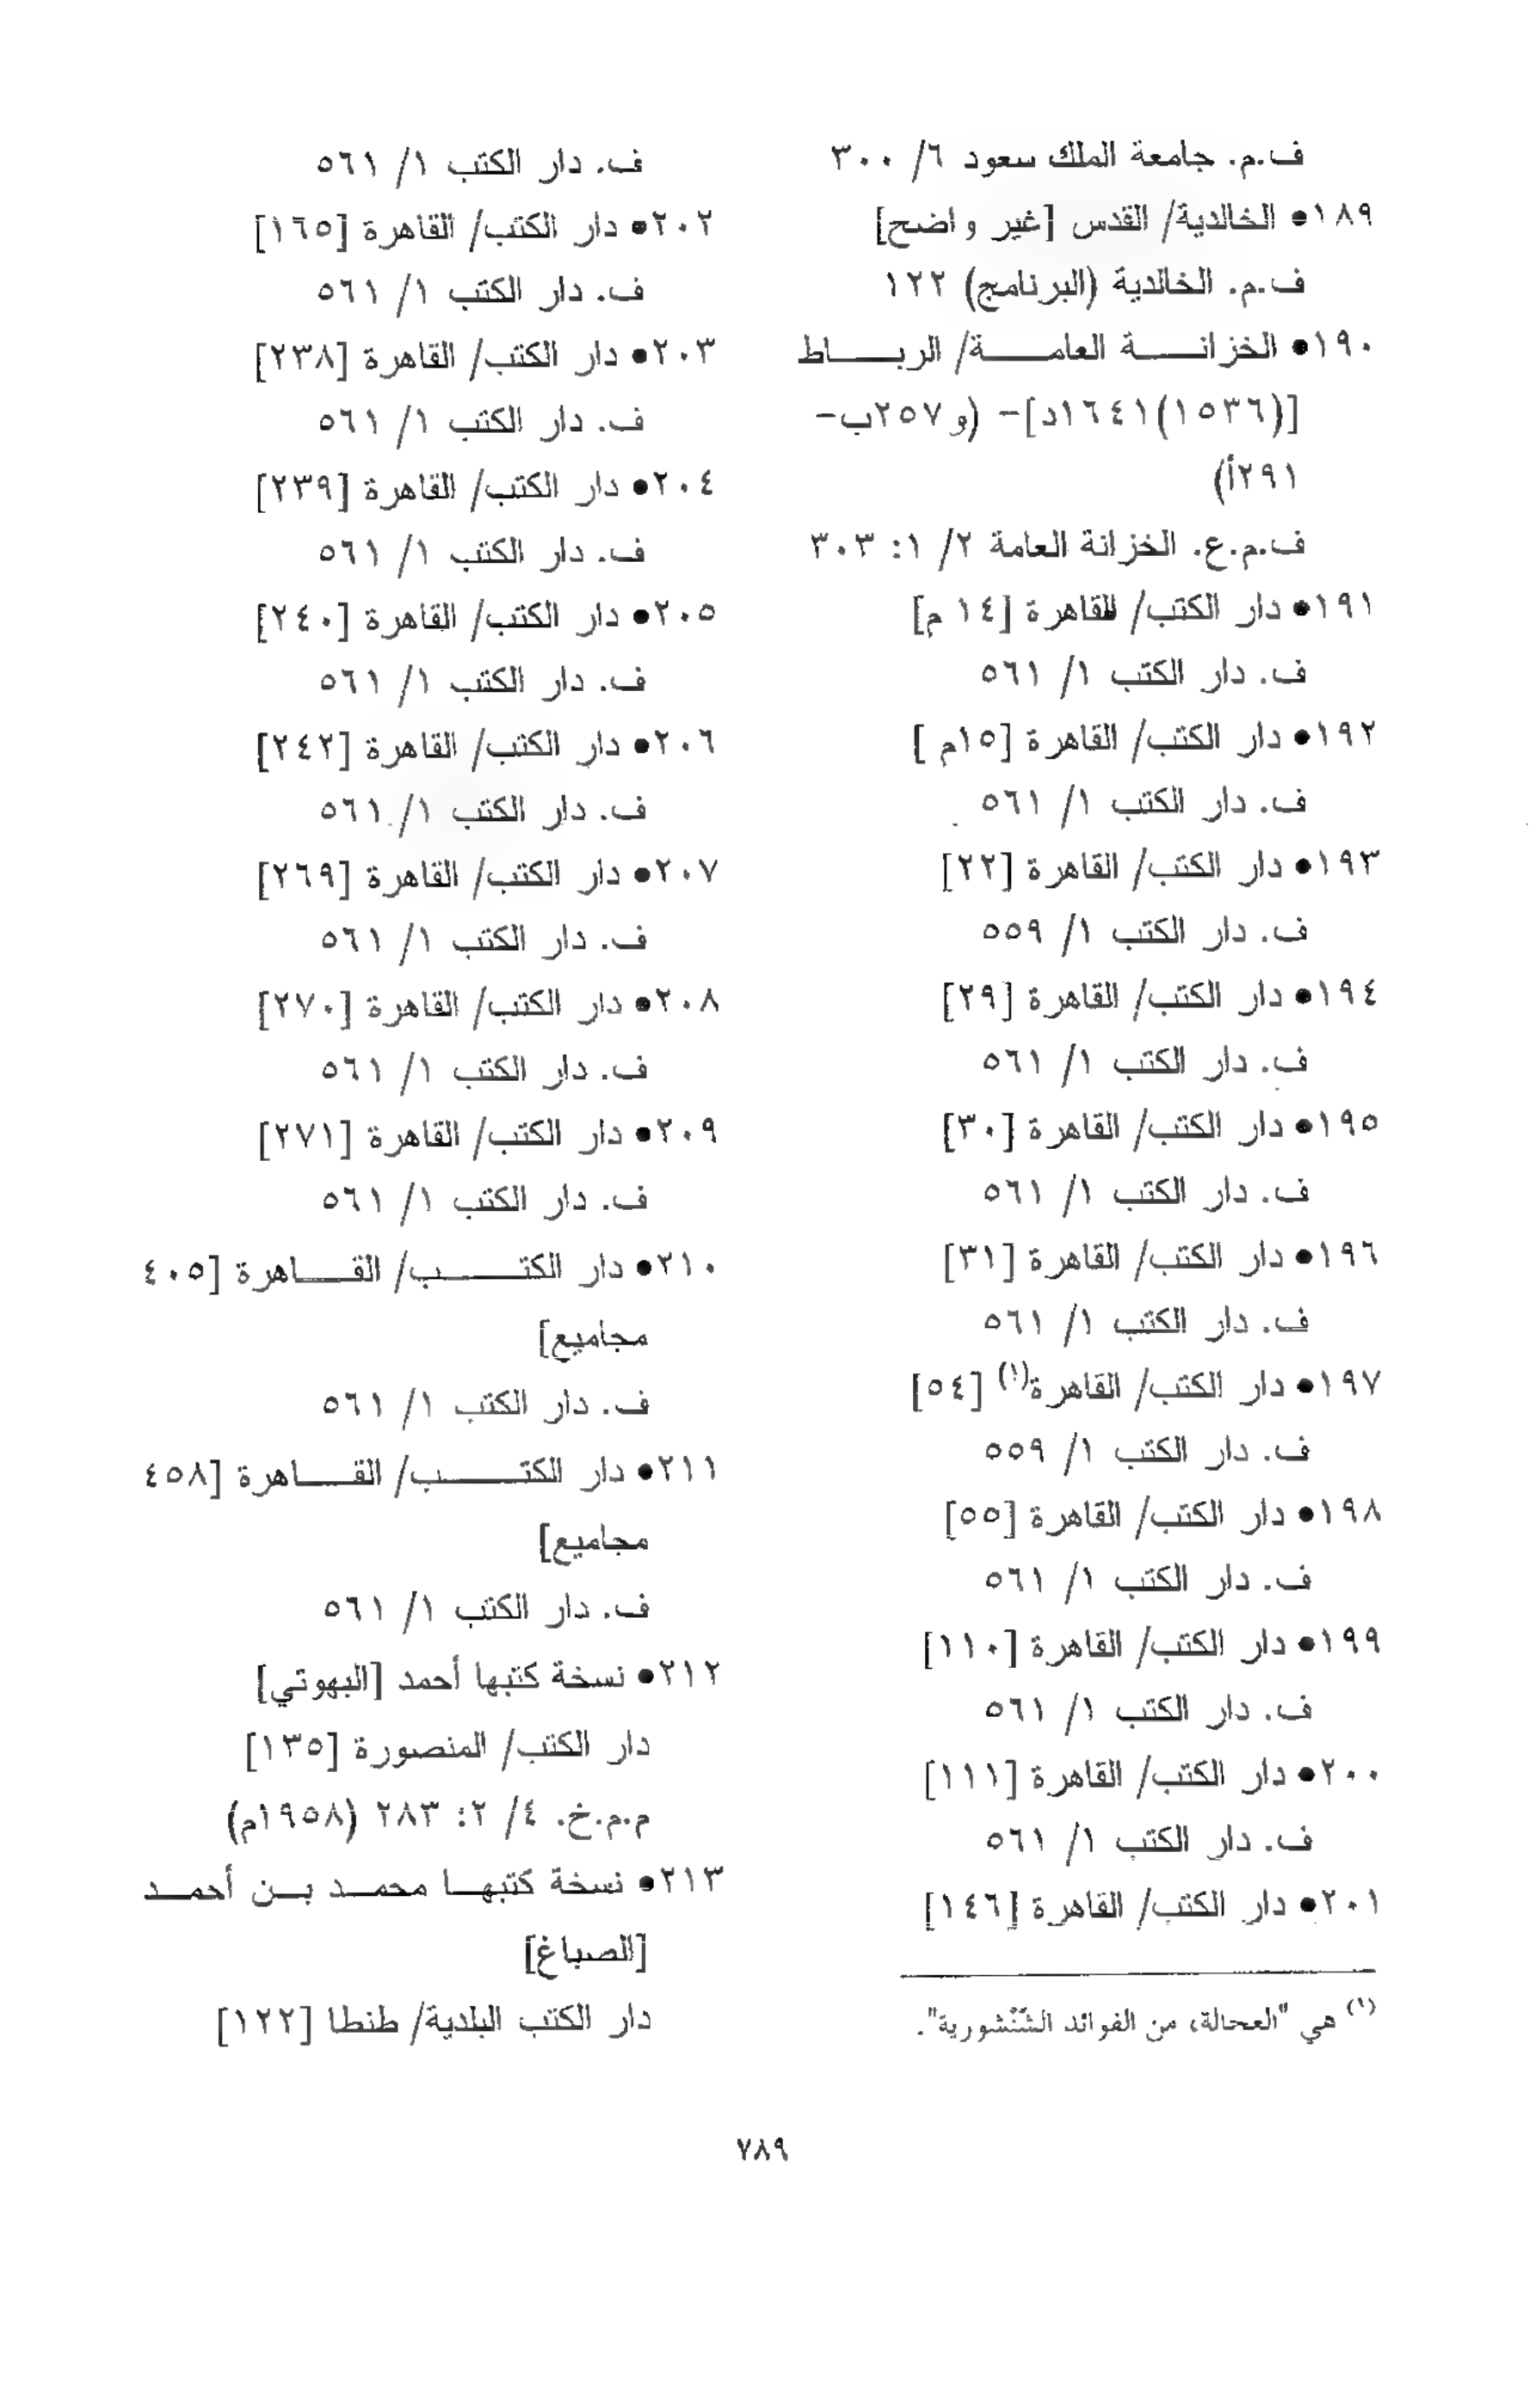 ف.م. جامعة الملك سعود ٦/ ٣٠٠
١٨٩• الخالدية/ القدس [غير واضح]
ف.م. الخالدية (البرنامج) ١٢٢
١٩٠• الخزانة العامة/ الرباط
[(١٥٣٦)١٦٤١د]- (و٢٥٧ب-
٢٩١أ)
ف.م.ع. الخزانة العامة ٢/ ١: ٣٠٣
١٩١• دار الكتب/ القاهرة [١٤ م]
ف. دار الكتب ١/ ٥٦١
١٩٢• دار الكتب/ القاهرة [١٥م ]
ف. دار الكتب ١/ ٥٦١
١٩٣• دار الكتب/ القاهرة [٢٢]
ف. دار الكتب ١/ ٥٥٩
١٩٤• دار الكتب/ القاهرة [٢٩]
ف. دار الكتب ١/ ٥٦١
١٩٥• دار الكتب/ القاهرة [٣٠]
ف. دار الكتب ١/ ٥٦١
١٩٦• دار الكتب/ القاهرة [٣١]
ف. دار الكتب ١/ ٥٦١
١٩٧• دار الكتب/ القاهرة(١) [٥٤]
ف. دار الكتب ١/ ٥٥٩
١٩٨• دار الكتب/ القاهرة [٥٥]
ف. دار الكتب ١/ ٥٦١
١٩٩• دار الكتب/ القاهرة [١١٠]
ف. دار الكتب ١/ ٥٦١
٢٠٠• دار الكتب/ القاهرة [١١١]
ف. دار الكتب ١/ ٥٦١
٢٠١• دار الكتب/ القاهرة [١٤٦]
(١) هي "العجالة، من الفوائد الشّنْشورية".
ف. دار الكتب ١/ ٥٦١
٢٠٢• دار الكتب/ القاهرة [١٦٥]
ف. دار الكتب ١/ ٥٦١
٢٠٣• دار الكتب/ القاهرة [٢٣٨]
ف. دار الكتب ١/ ٥٦١
٢٠٤• دار الكتب/ القاهرة [٢٣٩]
ف. دار الكتب ١/ ٥٦١
٢٠٥• دار الكتب/ القاهرة [٢٤٠]
ف. دار الكتب ١/ ٥٦١
٢٠٦• دار الكتب/ القاهرة [٢٤٢]
ف. دار الكتب ١/ ٥٦١
٢٠٧• دار الكتب/ القاهرة [٢٦٩]
ف. دار الكتب ١/ ٥٦١
٢٠٨• دار الكتب/ القاهرة [٢٧٠]
ف. دار الكتب ١/ ٥٦١
٢٠٩• دار الكتب/ القاهرة [٢٧١]
ف. دار الكتب ١/ ٥٦١
٢١٠• دار الكتب/ القاهرة [٤٠٥
مجاميع]
ف. دار الكتب ١/ ٥٦١
٢١١• دار الكتب/ القاهرة [٤٥٨
مجاميع]
ف. دار الكتب ١/ ٥٦١
٢١٢• نسخة كتبها أحمد [البهوتي]
دار الكتب/ المنصورة [١٣٥]
م.م.خ. ٤/ ٢: ٢٨٣ (١٩٥٨م)
٢١٣• نسخة كتبها محمد بن أحمد
[الصباغ]
دار الكتب البلدية/ طنطا [١٢٢]
٧٨٩